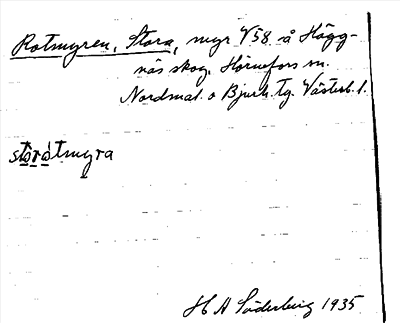 Rotmyren, Stora, myr V58 å Hägg-
näs skog, Hörnefors sn.
Nordmal. o Bjurh. tg. Västerb. l.
storòtmyra
H A Söderberg 1935